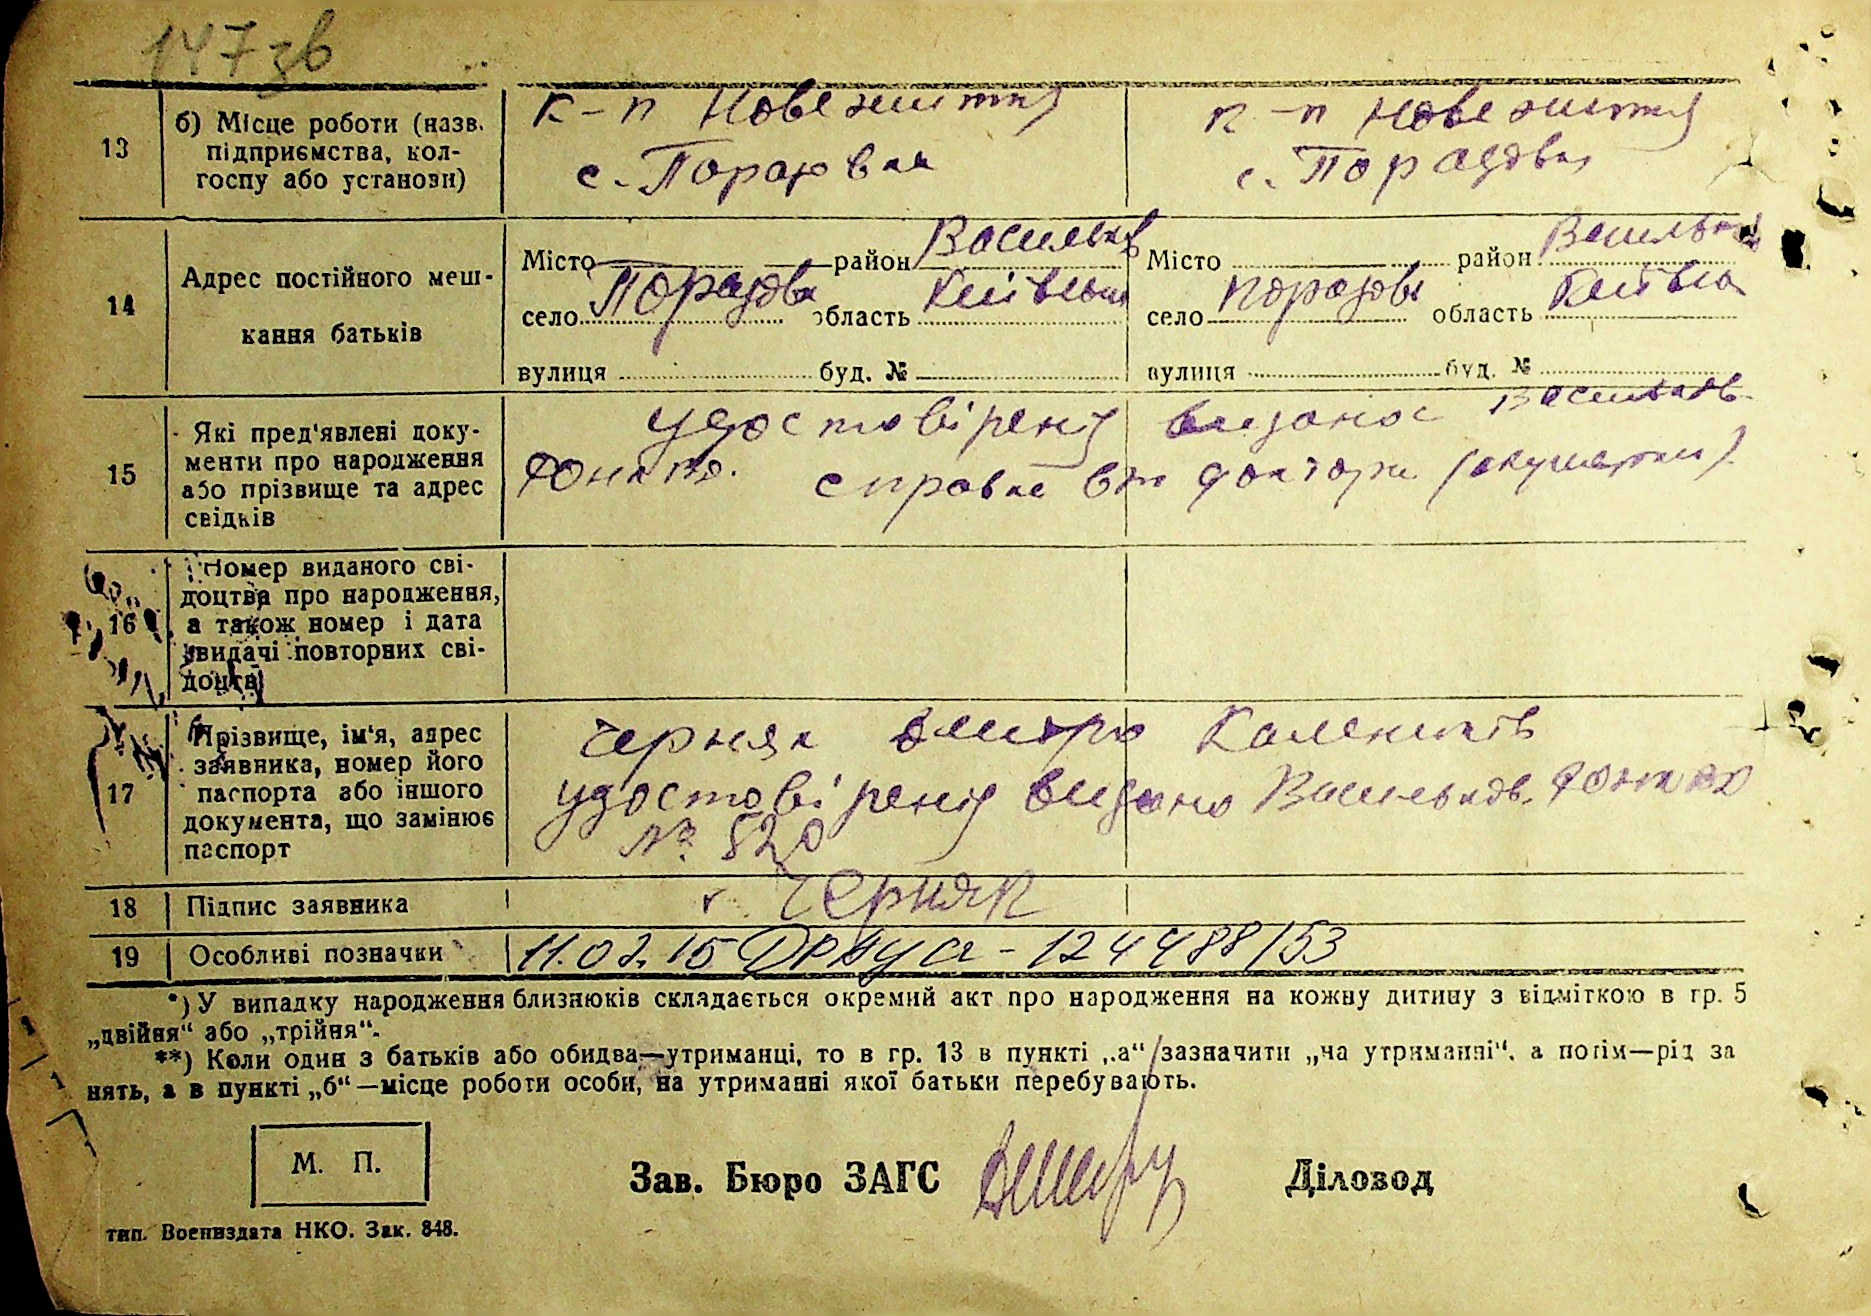 147 зв
13 б) Місце роботи (назв. підприємства, колгоспу або установи)
к-п Нове життя
с. Порадовка
к-п Нове життя
с. Порадовка
14 Адрес постійного мешкання батьків
Місто район Васильків
село Порадовка область Київська
вулиця буд. №
Місто район Васильків
село Порадовка область Київська
вулиця буд. №
15 Які пред'явлені документи про народження або прізвище та адрес свідків
удостовіренія видано Васильков.
справка від доктора (акушерки)
16 Номер виданого свідоцтва про народження, а також номер і дата видачі повторних свідоцтв
17 Прізвище, ім'я, адрес заявника, номер його паспорта або іншого документа, що замінює паспорт
Черняк
удостовіреня видано Васильков.
№ 520
18 Підпис заявника
Черняк
19 Особливі позначки
11.02.15 124488/53
*) У випадку народження близнюків складається окремий акт про народження на кожну дитину з відміткою в гр. 5
„двійня“ або „трійня“.
**) Коли один з батьків або обидва—утриманці, то в гр. 13 в пункті „а“ зазначити „на утриманні“, а потім—рід за
нять, а в пункті „б“—місце роботи особи, на утриманні якої батьки перебувають.
М. П.
Зав. Бюро ЗАГС
Діловод
тип. Воениздата НКО. Зак. 848.